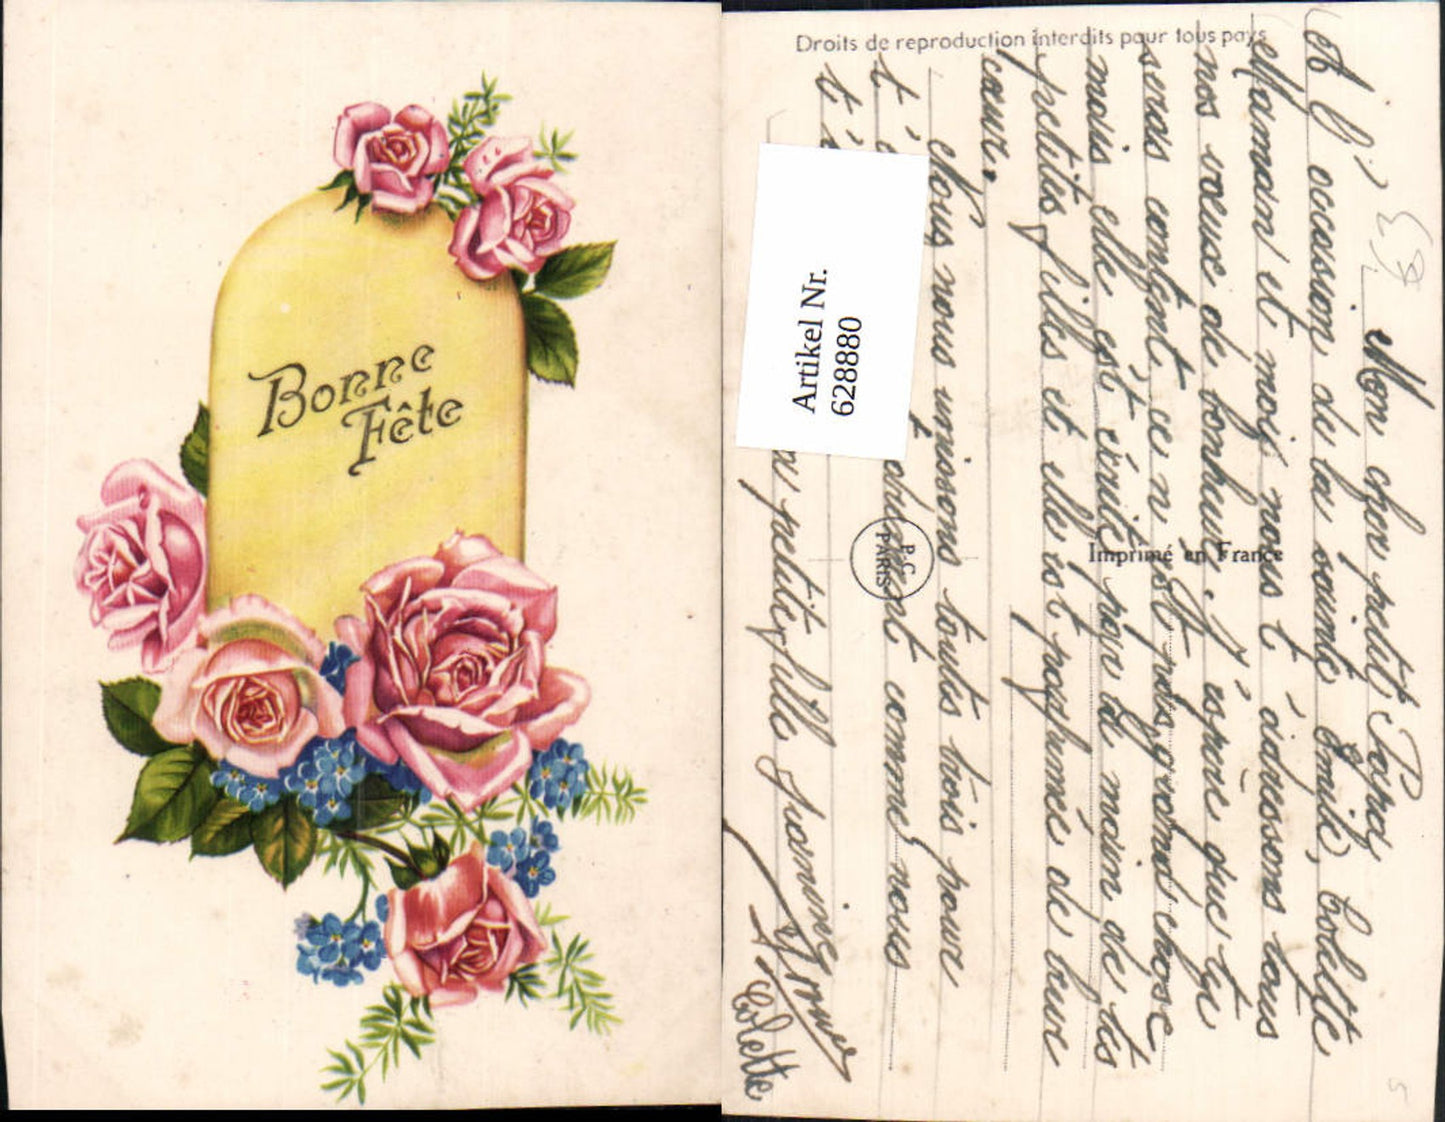 Bonne
Fête
Droits de reproduction interdits pour tous pays
Mon cher petit Papa,
A l'occasion de la sainte Emile, Colette
Maman et moi nous t'adressons tous
nos vœux de bonheur. J'espère que tu
seras content, ce n'est pas grand chose
mais elle est écrite par la main de tes
petites filles et elle est parfumée de leur
cœur.
Nous nous unissons toutes trois pour
t' ardement comme nous
t'
petite fille Jeanine
Colette
Imprimé en France
P.C.
PARIS
Artikel Nr.
628880
5